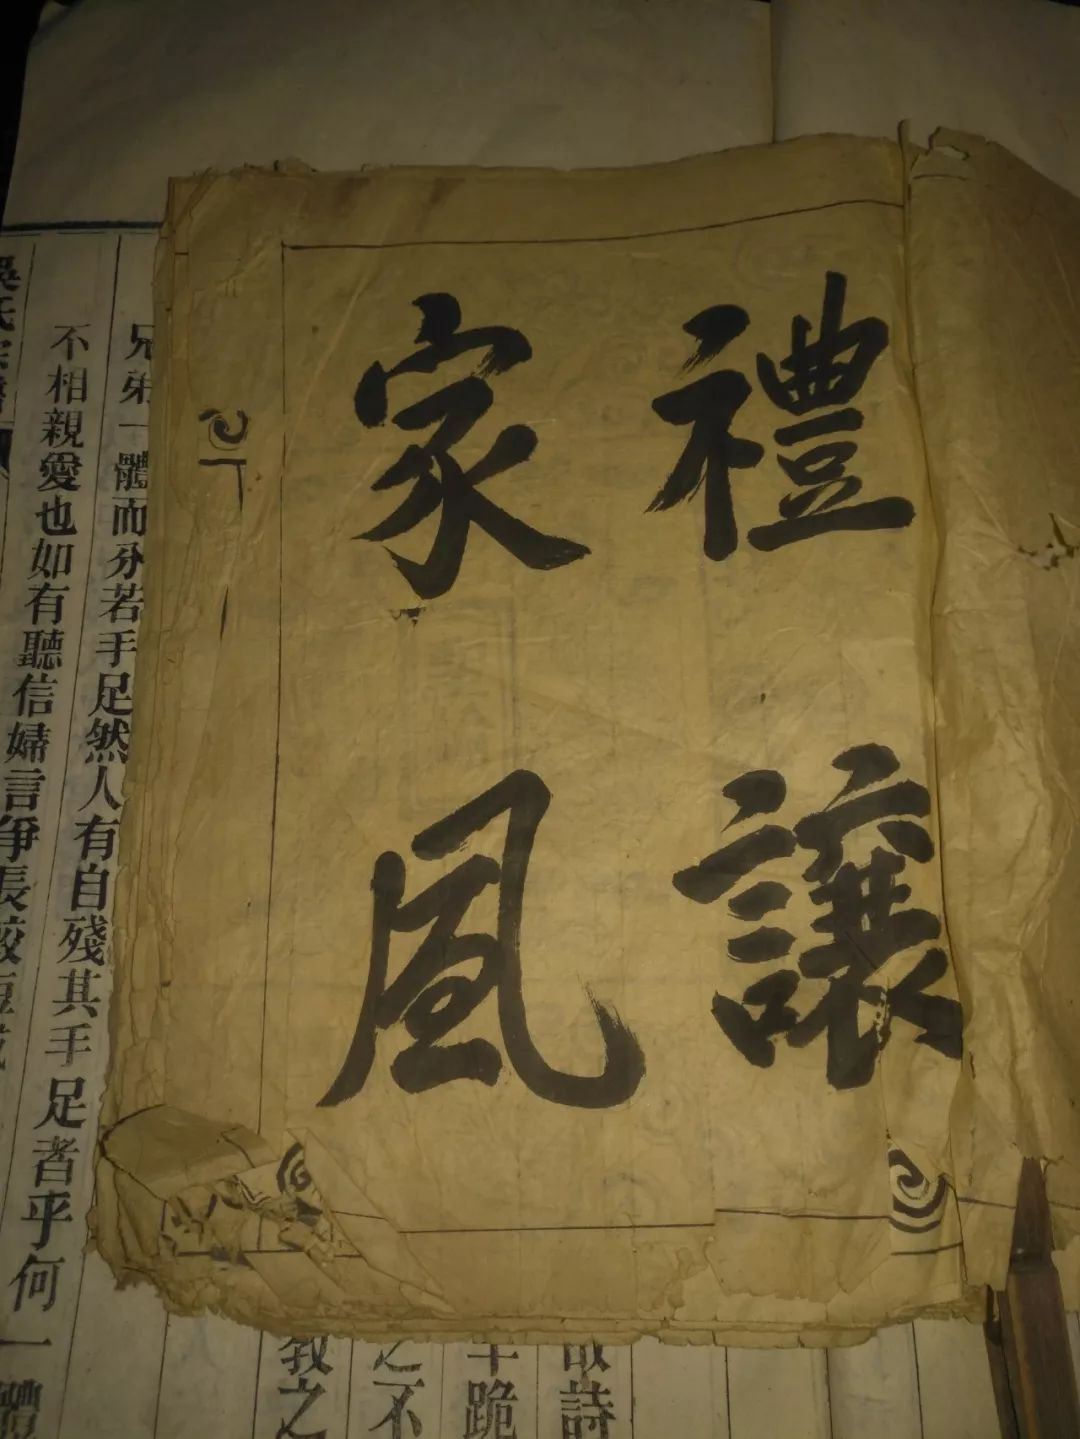 禮讓
家風
故詩
之不
教之
兄弟一體而分若手足然人有自殘其手足者乎何一體
不相親愛也如有聽信婦言爭長較短
吳氏宗譜